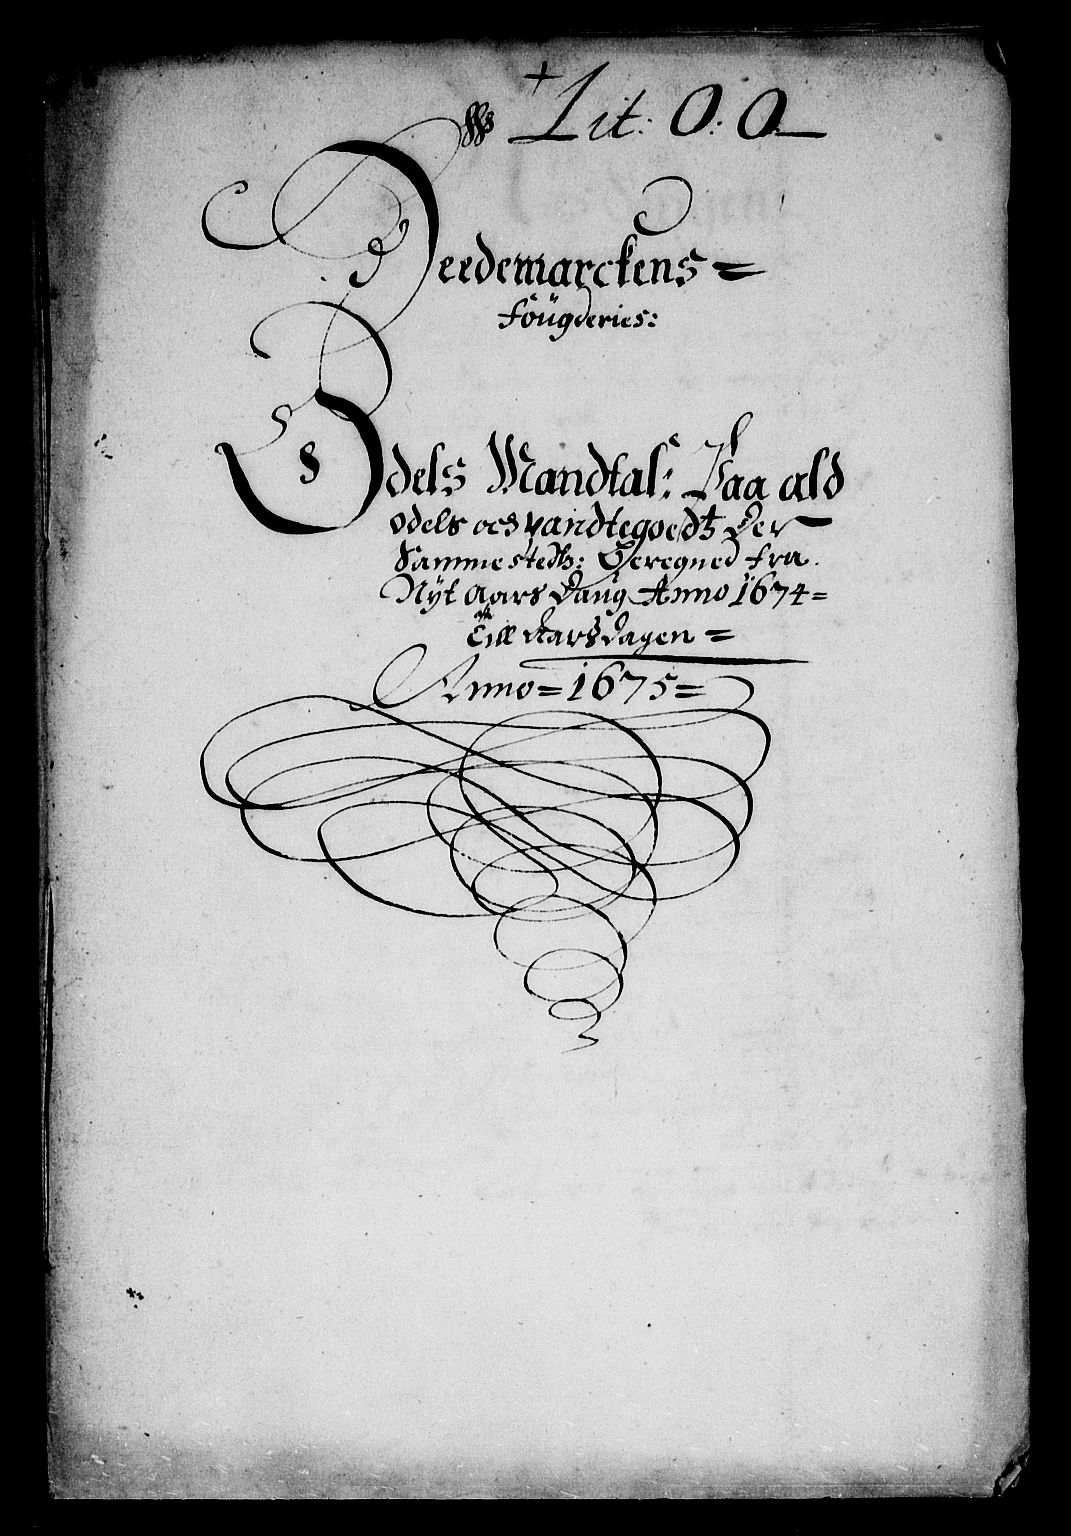 + Lit: O: O
Heedemarckens =
fougderies:
Odels Mandtal: Paa ald
odels och pandtegoedtz der
Sammestedtz: Beregned fra
Nÿt Aars Daug Anno 1674 =
Till Aarsdagen =
Anno = 1675 =